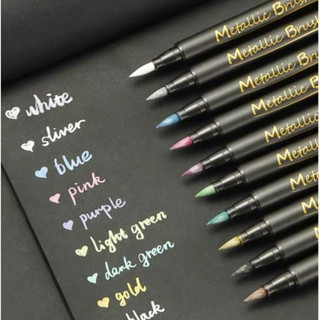 white
sliver
blue
pink
purple
light green
dark green
gold
black
Metallic Brush
Metallic Brus
Metallic Brus
Metallic Brus
Metallic Brus
Metallic Brus
Metallic Brus
Metallic Br
Metallic B
Metallic